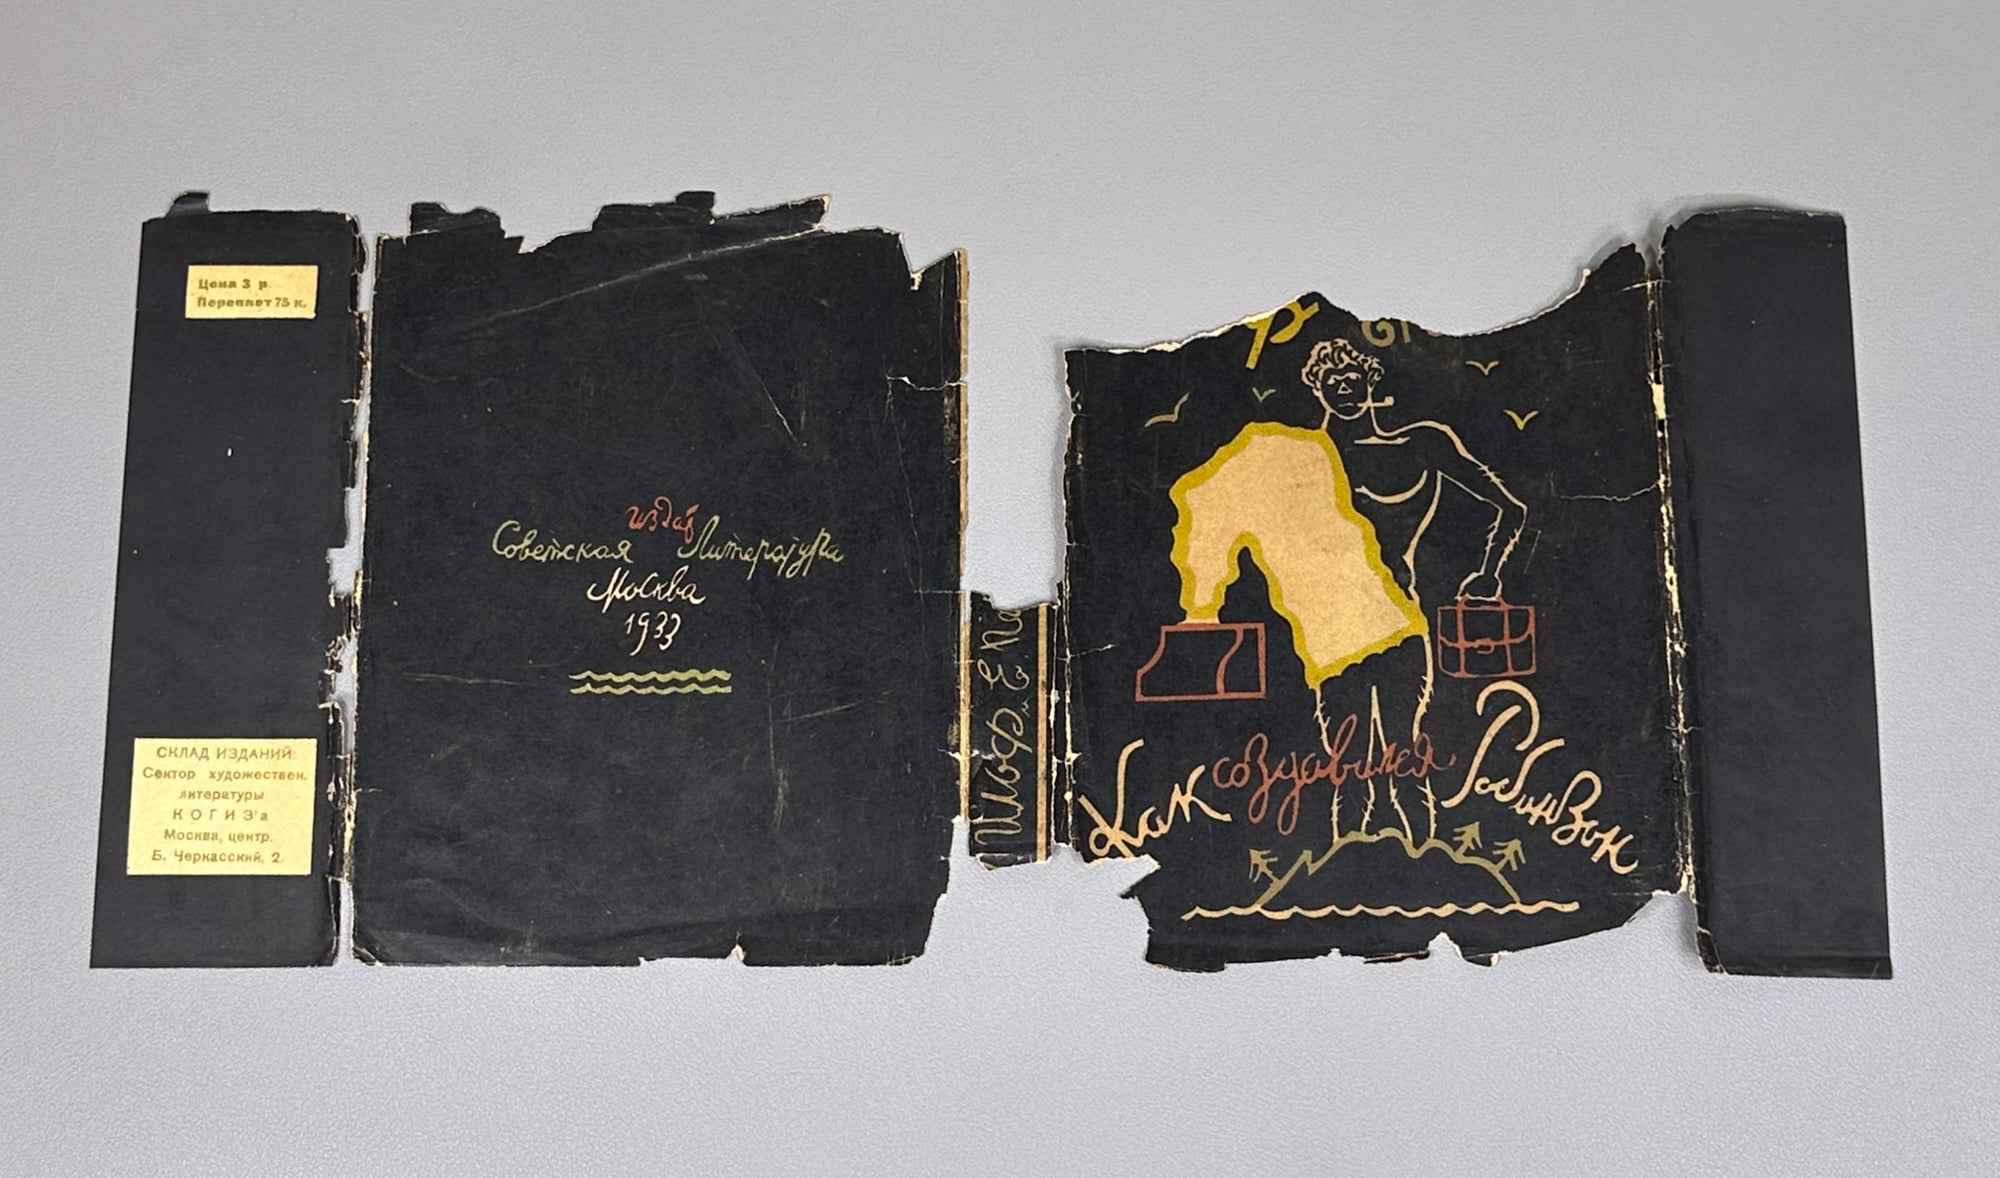 Цена 3 р.
Переплет 75 к.
СКЛАД ИЗДАНИЙ:
Сектор художествен.
литературы
КОГИЗ'а
Москва, центр.
Б. Черкасский, 2.
издат
Советская Литература
Москва
1933
Ильф и Е Пе
Как создавался Робинзон